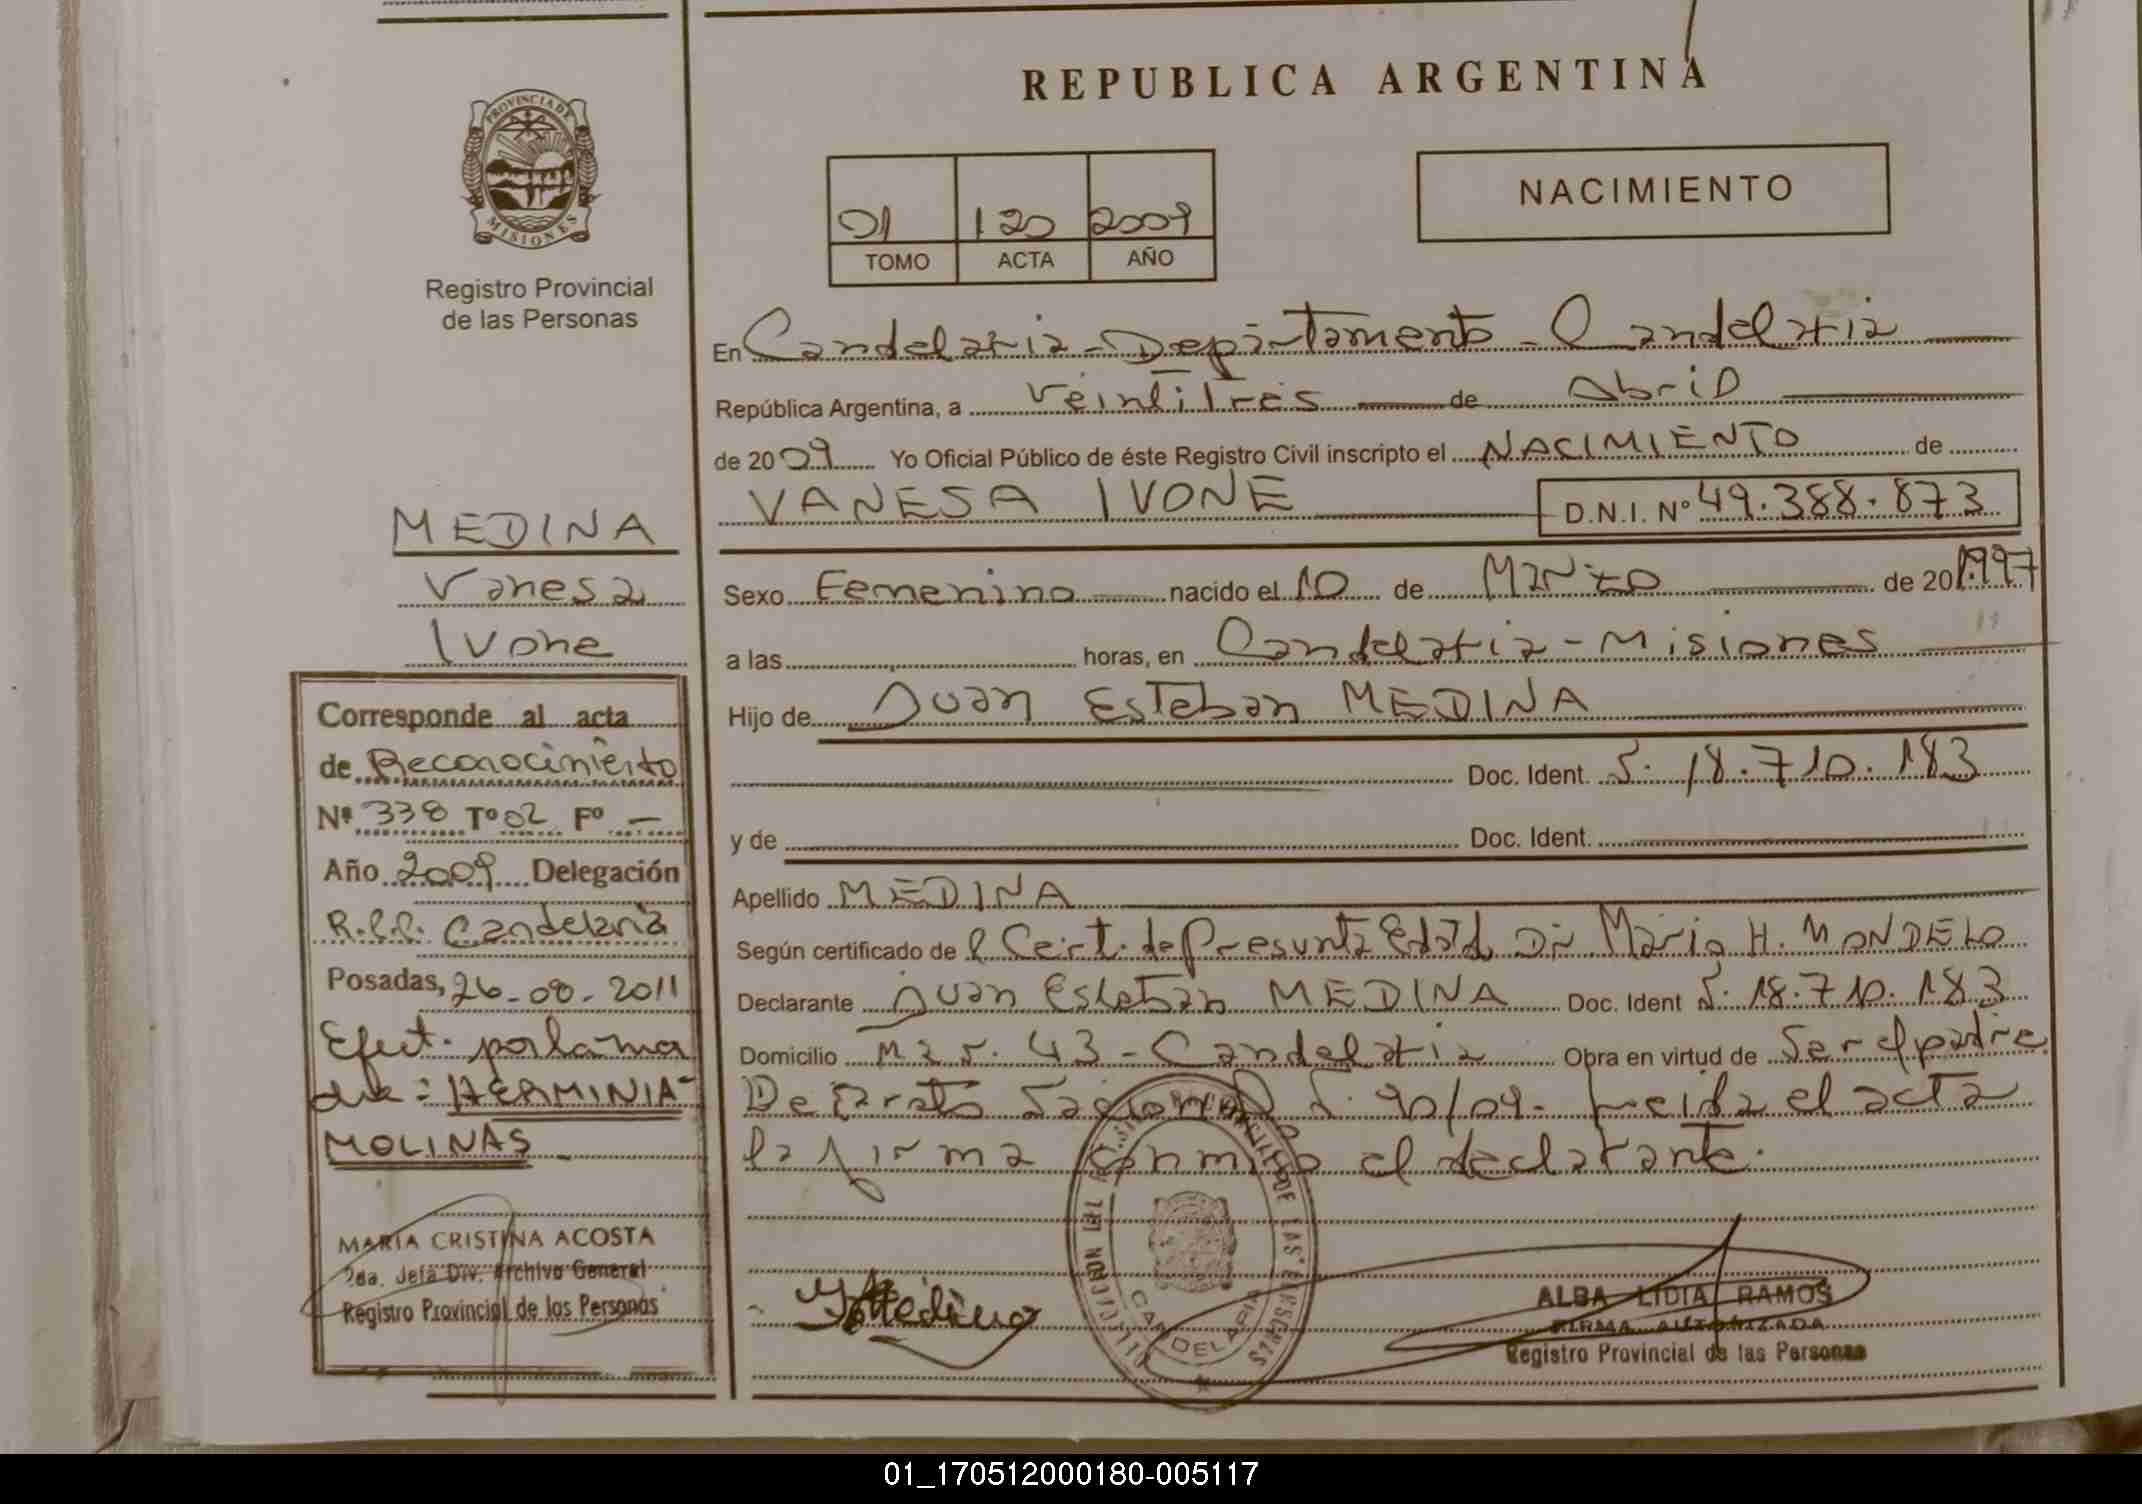 REPUBLICA ARGENTINA
PROVINCIA DE
MISIONES
Registro Provincial
de las Personas
01 120 2009
TOMO ACTA AÑO
NACIMIENTO
En Candelaria - Departamento - Candelaria
República Argentina, a veintitres de Abril
de 2009 Yo Oficial Público de éste Registro Civil inscripto el NACIMIENTO de
VANESA IVONE D.N.I. Nº 49.388.873
Sexo Femenino nacido el 10 de Marzo de 20 1997
a las horas, en Candelaria - Misiones
Hijo de Juan Esteban MEDINA
Doc. Ident. 18.710.183
y de Doc. Ident.
Apellido MEDINA
Según certificado de el Cert. de Presunta Edad Dr Mario H. MONDELO
Declarante Juan Esteban MEDINA Doc. Ident 18.710.183
Domicilio 43 - Candelaria Obra en virtud de Ser el padre
90/09. Leida el acta
la firma conmigo el declarante.
MEDINA
Vanesa
Ivone
Corresponde al acta
de Reconocimiento
Nº 338 Tº 02 Fº -
Año 2009 Delegación
R.P.P. Candelaria
Posadas, 26-08-2011
Efect. por la ma
dre: HERMINIA
MOLINAS
MARIA CRISTINA ACOSTA
2da. Jefa Div. Archivo General
Registro Provincial de las Personas
Medina
CANDELARIA
ALBA LIDIA RAMOS
FIRMA AUTORIZADA
Registro Provincial de las Personas
01_170512000180-005117